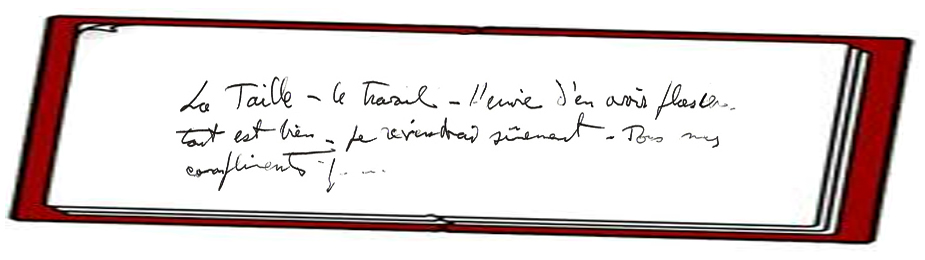 La Taille - le travail - l'envie d'en avoir plusieurs.
tout est bien - je reviendrai sûrement - Tous mes
compliments !....